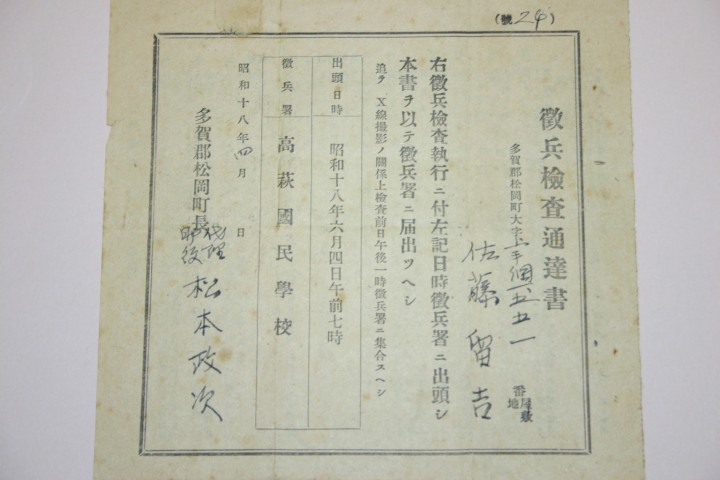 (號 24)
徵兵檢查通達書
多賀郡松岡町大字上手綱 五五一 番屋敷 地
佐藤留吉
右徵兵檢査執行ニ付左記日時徵兵署ニ出頭シ
本書ヲ以テ徵兵署ニ届出ツヘシ
追テ X線撮影ノ關係上檢査前日午後一時徵兵署ニ集合スヘシ
出頭日時 昭和十八年六月四日午前七時
徵兵署 高萩國民學校
昭和十八年四月 日
多賀郡松岡町長
代理
助役
松本政次